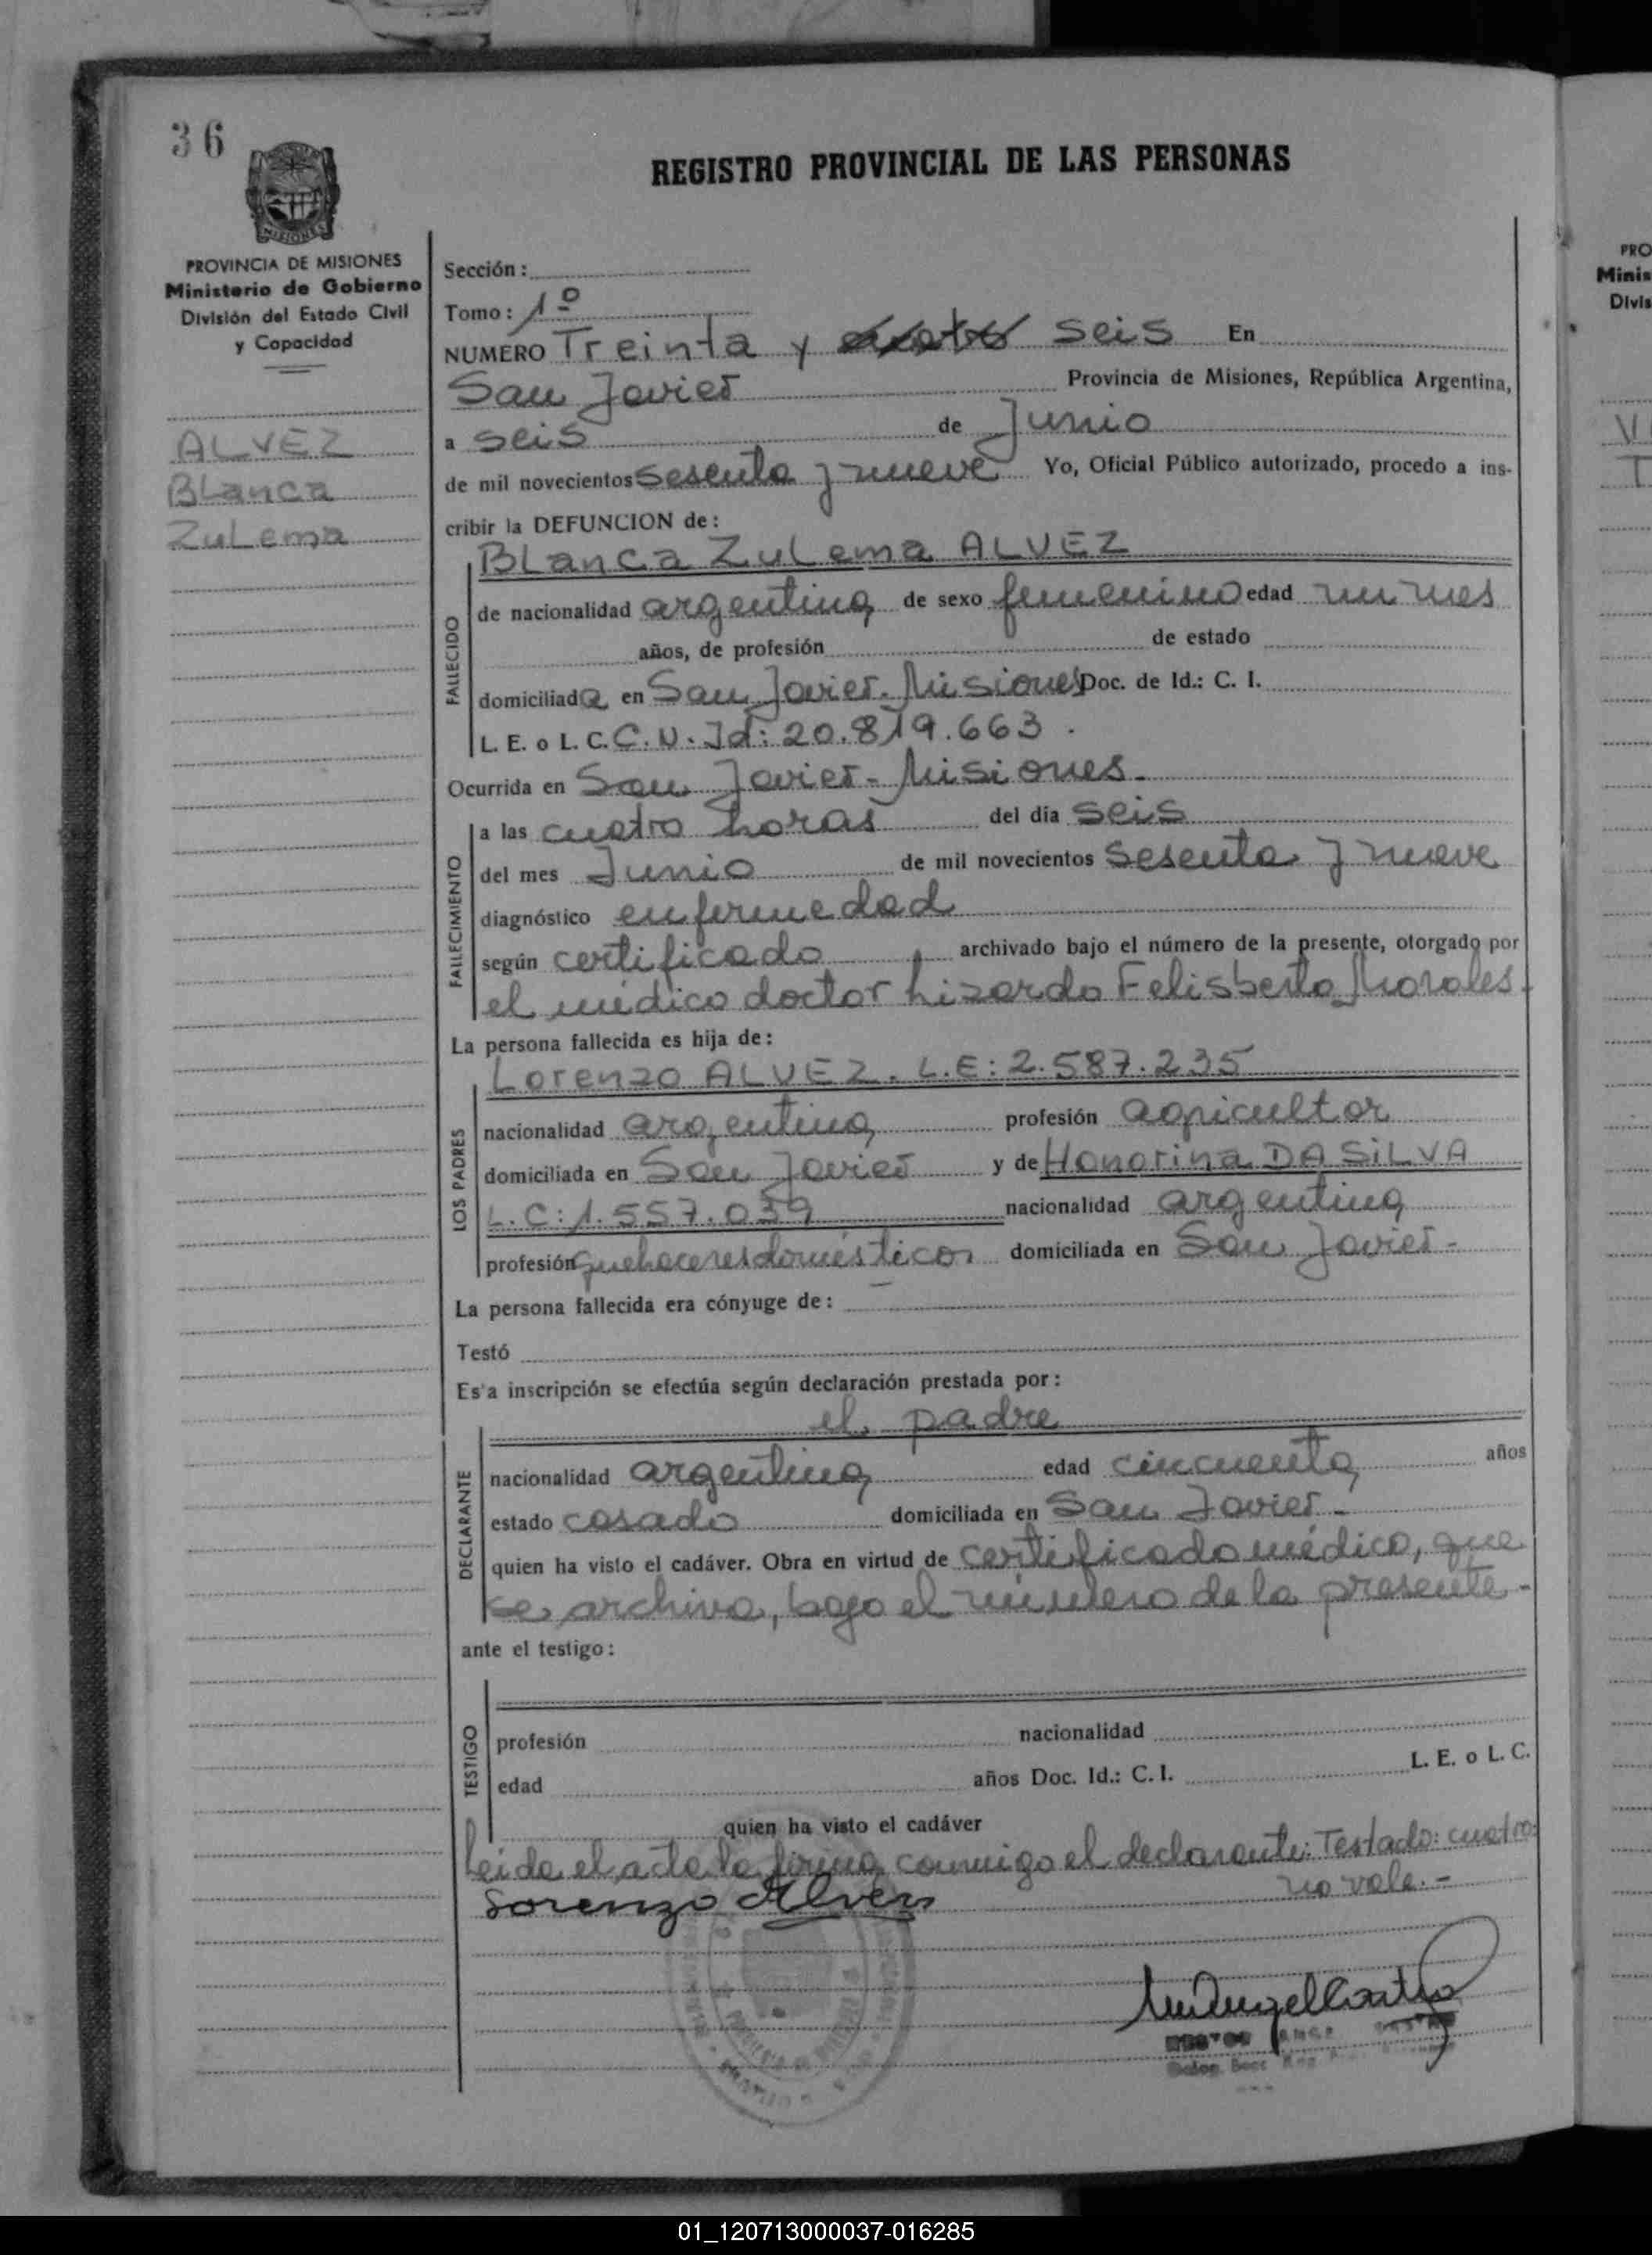 36
REGISTRO PROVINCIAL DE LAS PERSONAS
MISIONES
PROVINCIA DE MISIONES
Ministerio de Gobierno
División del Estado Civil
y Capacidad
ALVEZ
Blanca
Zulema
Sección:
Tomo: 1º
NUMERO Treinta y cuatro seis En
San Javier Provincia de Misiones, República Argentina,
a seis de Junio
de mil novecientos sesenta y nueve Yo, Oficial Público autorizado, procedo a ins-
cribir la DEFUNCION de:
Blanca Zulema ALVEZ
FALLECIDO
de nacionalidad argentina de sexo femenino edad un mes
años, de profesión de estado
domiciliada en San Javier. Misiones Doc. de Id.: C. I.
L. E. o L. C. C.N. Id: 20.819.663.
Ocurrida en San Javier - Misiones.
FALLECIMIENTO
a las cuatro horas del día seis
del mes Junio de mil novecientos sesenta y nueve
diagnóstico enfermedad
según certificado archivado bajo el número de la presente, otorgado por
el médico doctor Lizardo Felisberto Morales.
La persona fallecida es hija de:
LOS PADRES
Lorenzo ALVEZ. L.E: 2.587.235
nacionalidad argentina profesión agricultor
domiciliada en San Javier y de Honorina DA SILVA
L.C: 1.557.039 nacionalidad argentina
profesión quehaceres domésticos domiciliada en San Javier-
La persona fallecida era cónyuge de:
Testó
Esta inscripción se efectúa según declaración prestada por:
DECLARANTE
el padre
nacionalidad argentina edad cincuenta años
estado casado domiciliada en San Javier-
quien ha visto el cadáver. Obra en virtud de certificado médico, que
se archiva, bajo el número de la presente-
ante el testigo:
TESTIGO
profesión nacionalidad
edad años Doc. Id.: C. I. L. E. o L. C.
quien ha visto el cadáver
Leída el acta la firma conmigo el declarante: Testado: cuatro:
no vale.-
Lorenzo Alvez
PRO
Minis
Divis
01_120713000037-016285